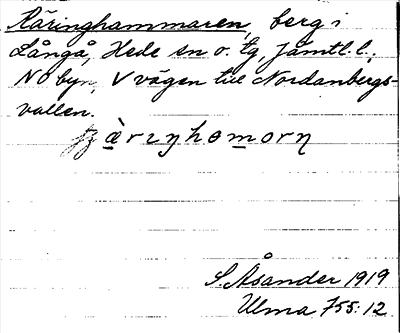 Käringhammaren, berg i
Långå, Hede sn o. tg, Jämtl. l.;
NO byn, V vägen till Nordanbergs-
vallen.
àrıŋhamorn
S. Åsander 1919
Ulma 755:12